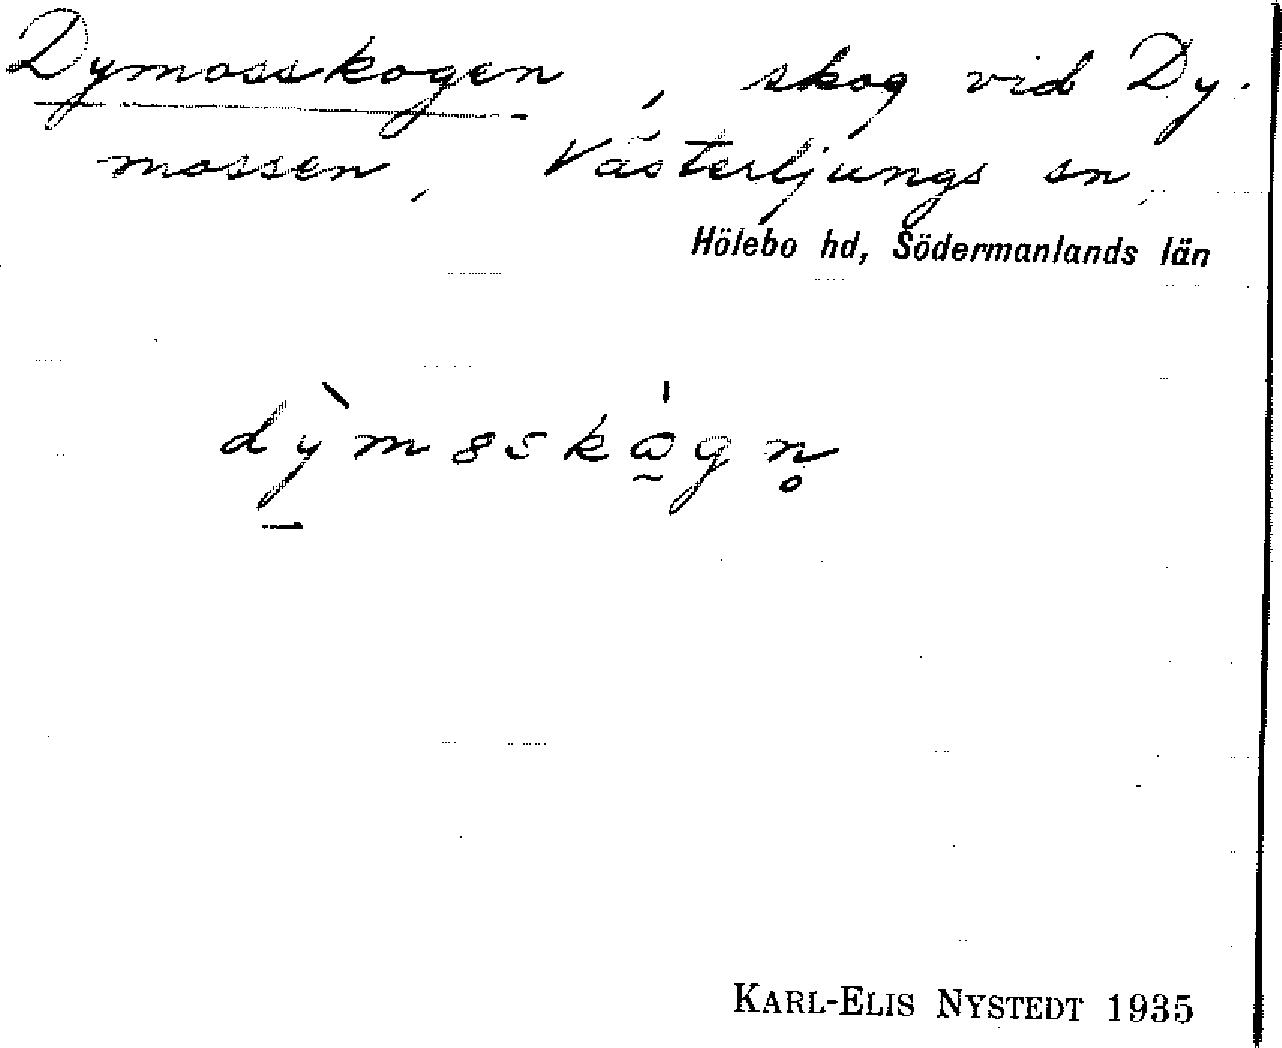 Dymosskogen, skog vid Dy-
mossen, Västerljungs sn,
Hölebo hd, Södermanlands län
dỳ̱m8skò̰gn̥
KARL-ELIS NYSTEDT 1935